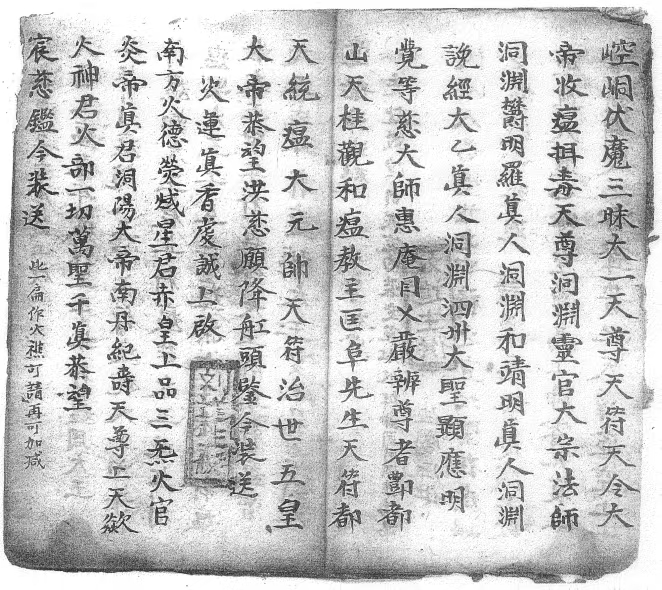 崆峒伏魔三昧大一天尊天符天令大
帝收瘟摄毒天尊洞淵靈官大宗法師
洞淵欝明羅真人洞淵和靖明真人洞淵
說經大乙真人洞淵泗州大聖顯應明
覺等慈大師惠庵目乂嚴辨尊者酆都
山天桂觀和瘟教主匡阜先生天符都
天統瘟大元帥天符治世五皇
大帝恭望洪慈願降舡頭鑒令裝送
火運真香虔誠上啟
南方火德熒惑星君赤皇上品三炁火官
炎帝真君洞陽大帝南丹紀壽天尊上天欻
火神君火部一切萬聖千真恭望
宸慈鑑今裝送
此一扁作火醮可請再可加减